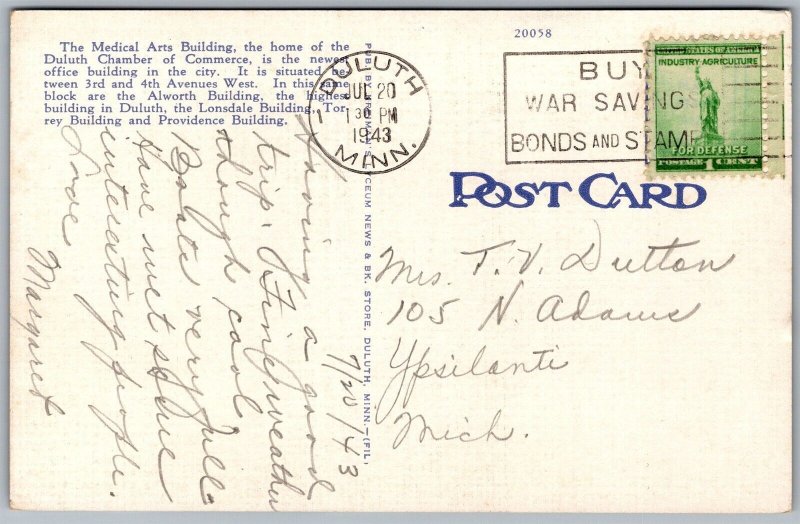 The Medical Arts Building, the home of the
Duluth Chamber of Commerce, is the newest
office building in the city. It is situated be-
tween 3rd and 4th Avenues West. In this same
block are the Alworth Building, the highest
building in Duluth, the Lonsdale Building, Tor-
rey Building and Providence Building.
20058
DULUTH
JUL 20
1 30 PM
1943
MINN.
BUY
WAR SAVINGS
BONDS AND STAMPS
UNITED STATES OF AMERICA
INDUSTRY AGRICULTURE
FOR DEFENSE
POSTAGE 1 CENT
POST CARD
LYCEUM NEWS & BK. STORE, DULUTH, MINN.—(FIL)
7/20/43
Having a good
trip. Fine weather
though cool
Boats very full
Have met some
interesting people.
Love
Margaret
Mrs. T. V. Dutton
105 N. Adams
Ypsilanti
Mich.